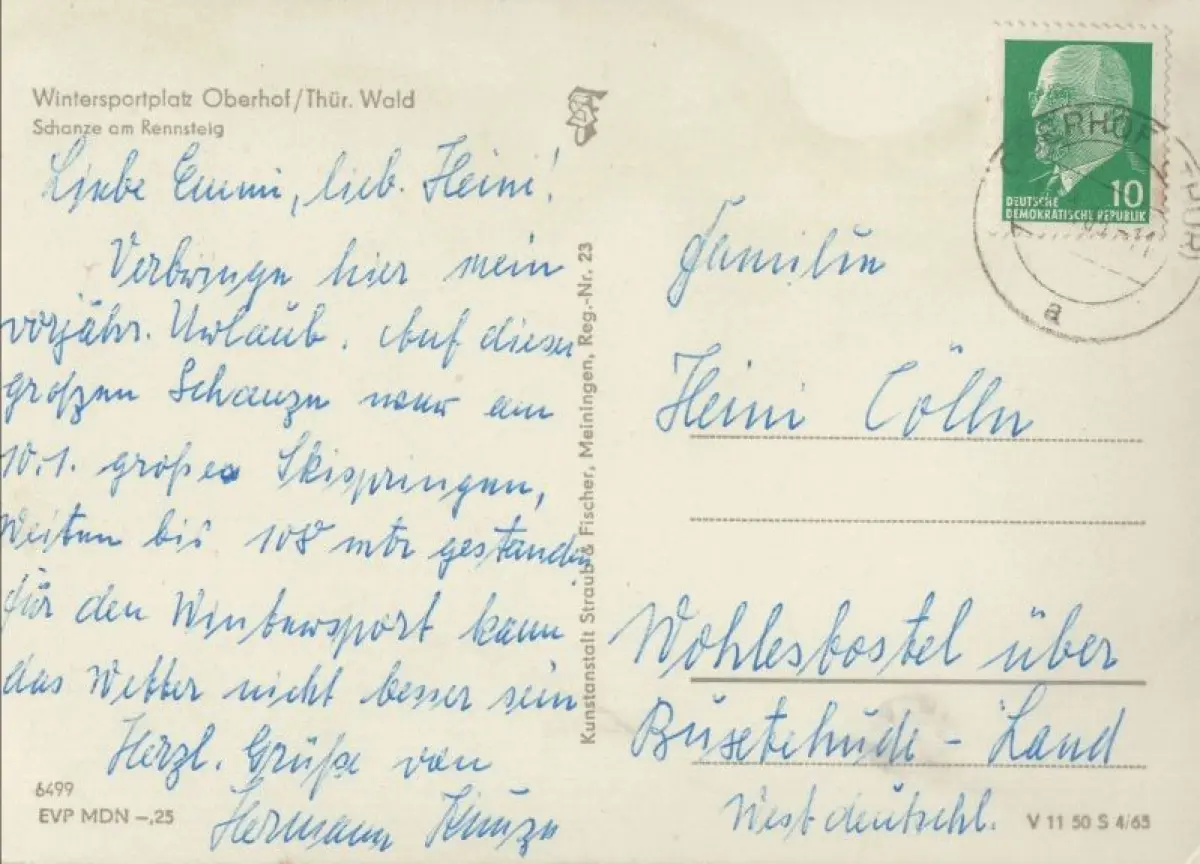 Wintersportplatz Oberhof/Thür. Wald
Schanze am Rennsteig
Liebe Emmi, lieb. Heini!
Verbringe hier mein
vorjähr. Urlaub. Auf dieser
großen Schanze war am
10.1. großes Skispringen,
Weiten bis 108 mtr gestanden
für den Wintersport kann
das Wetter nicht besser sein
Herzl. Grüße von
Hermann Kunze
6499
EVP MDN –,25
Kunstanstalt Straub & Fischer, Meiningen, Reg.-Nr. 23
10
DEUTSCHE
DEMOKRATISCHE REPUBLIK
a
Familie
Heini Cölln
Wohlesbostel über
Buxtehude - Land
Westdeutschl.
V 11 50 S 4/65